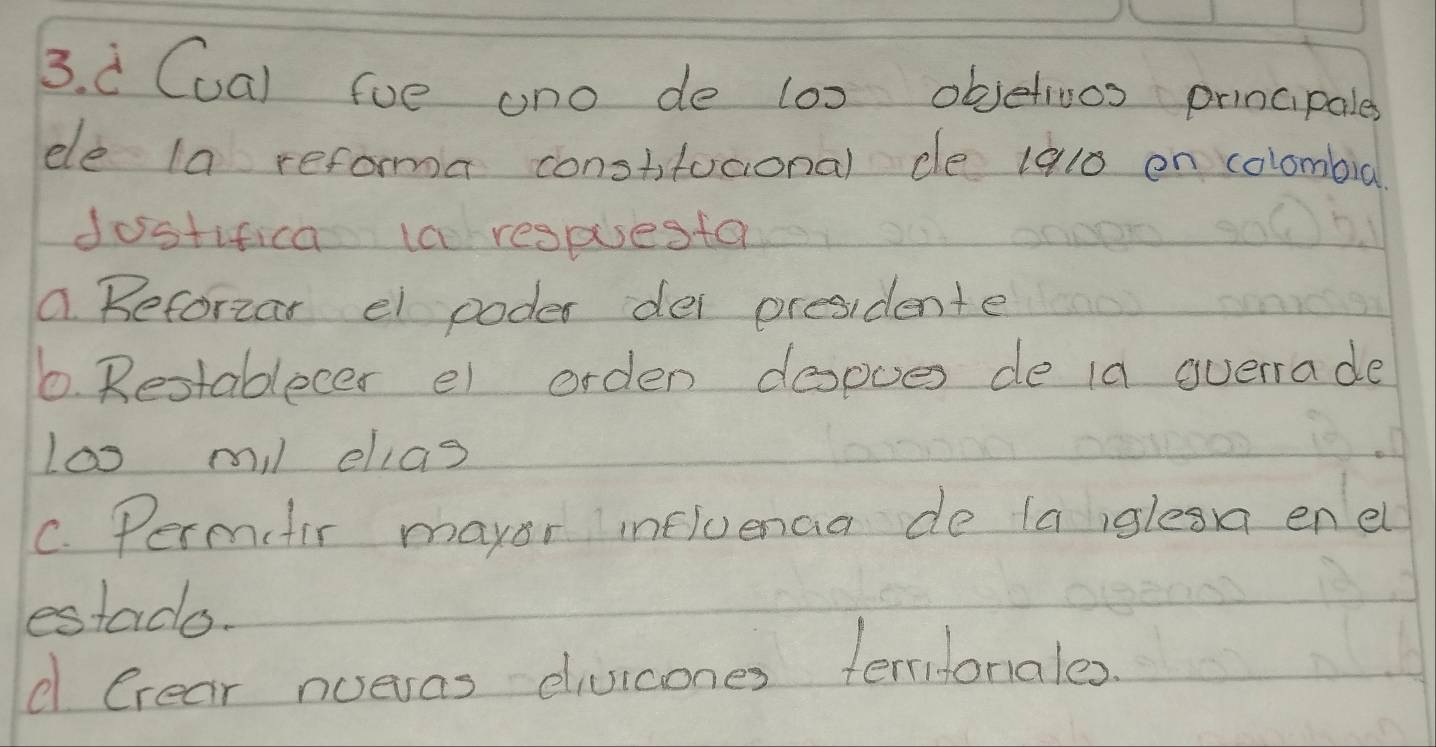 3. ¿Cual fue uno de los objetivos principales
de la reforma constitucional de 1910 en colombia.
Justifica la respuesta
a. Reforzar el poder del presidente
b. Restablecer el orden despues de la guerra de
los mil dias
c. Permitir mayor influencia de la iglesia en el
estado.
d Crear nuevas diviciones territoriales.